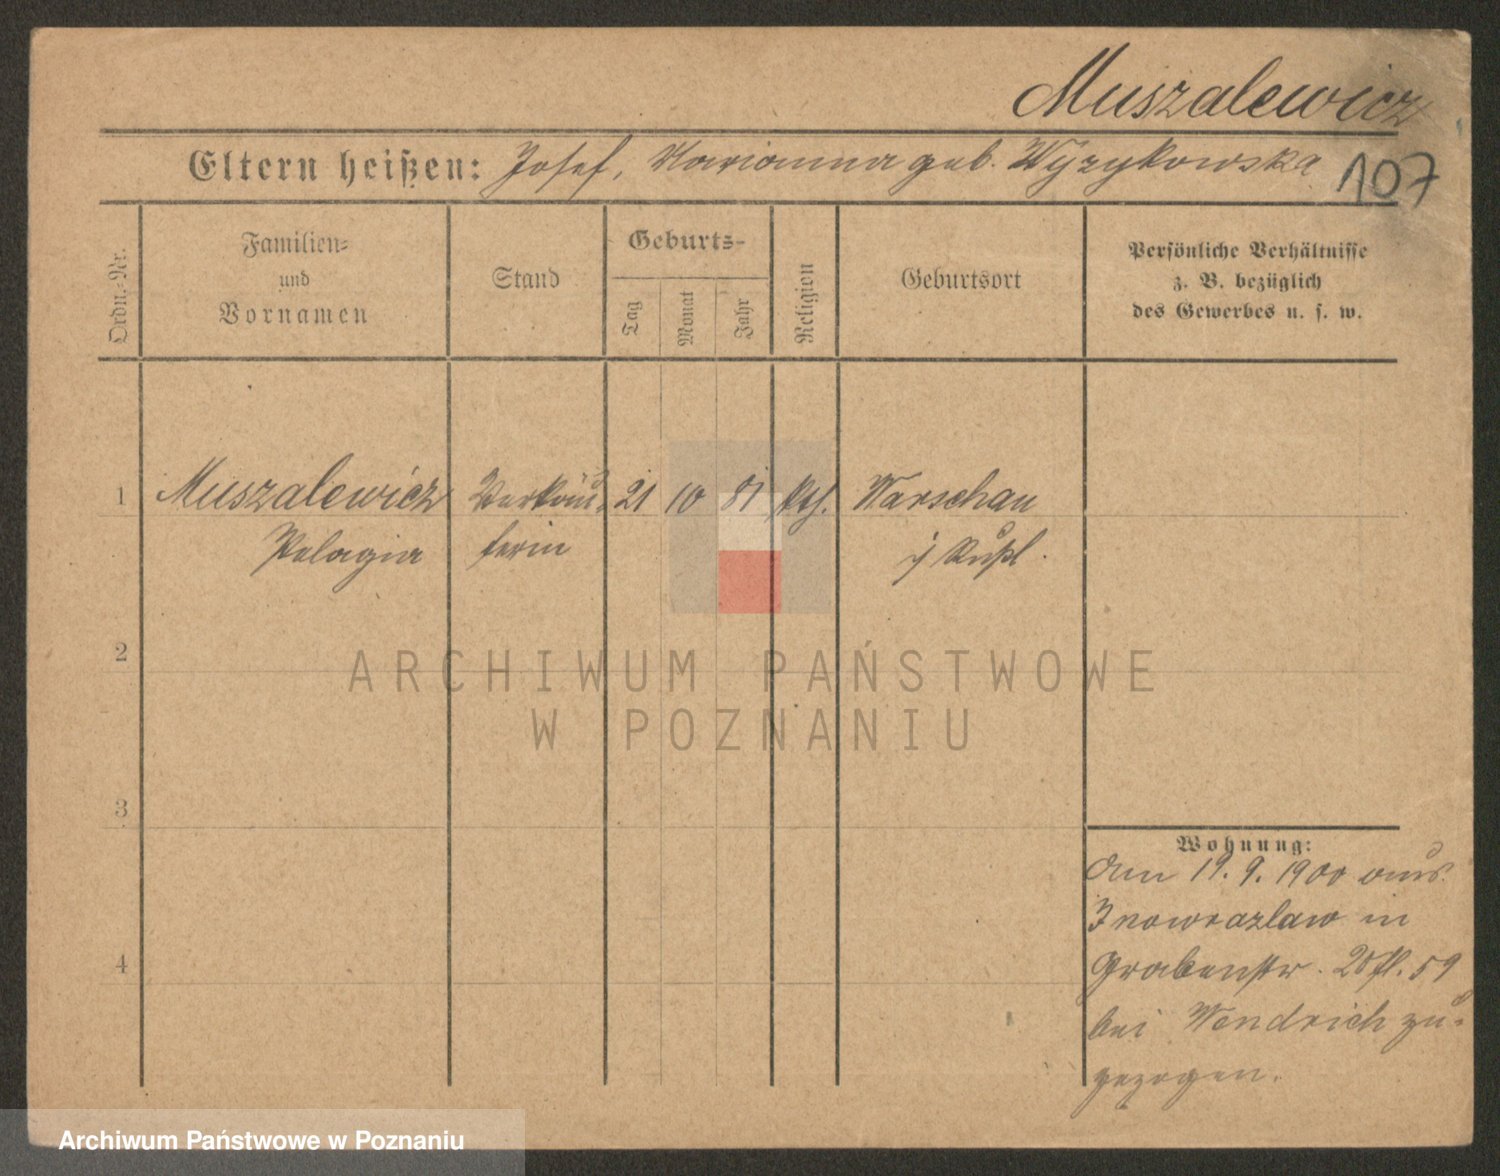 Muszalewicz
Eltern heißen: Josef, Marianna geb. Wyzykowska
107
Ordn.-Nr.
Familien-
und
Vornamen
Stand
Geburts-
Tag
Monat
Jahr
Religion
Geburtsort
Persönliche Verhältnisse
z. B. bezüglich
des Gewerbes u. s. w.
1 Muszalewicz Verkäu- 21 10 81 kth. Warschau
Pelagia ferin i/ Rußl.
2
ARCHIWUM PAŃSTWOWE
W POZNANIU
3
Wohnung:
Am 19. 9. 1900 aus
Inowrazlaw in
Grabenstr. 59
4
bei Wendrich zu-
gezogen.
Archiwum Państwowe w Poznaniu